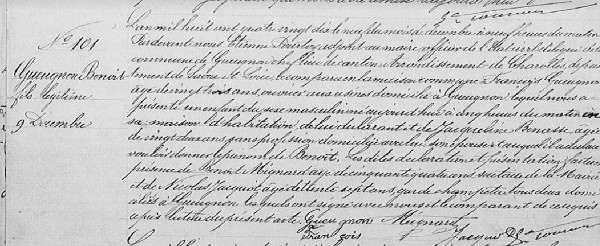 No 101
Gueugnon Benoît
fils légitime
9 Décembre
L'an mil huit cent quatre vingt dix le neuf du mois de décembre à neuf heures du matin
Pardevant nous Etienne adjoint au maire officier de l'Etat civil de la
commune de Gueugnon chef lieu de canton Arrondissement de Charolles, dépar
tement de Saône et Loire, a comparu en la maison commune François Gueugnon
âgé de vingt trois ans, ouvrier aux usines domicilié à Gueugnon lequel nous a
présenté un enfant du sexe masculin né aujourd'hui à cinq heures du matin en
sa maison d'habitation de lui déclarant et de Jacqueline Benasse âgée
de vingt deux ans, sans profession domiciliée avec lui son épouse et auquel il a déclaré
vouloir donner le prénom de Benoît. Les dites déclaration et présentation faites en
présence de Benoît Mignard âgé de cinquante quatre ans secrétaire de la Mairie
et de Nicolas Jacquot âgé de trente sept ans, garde champêtre tous deux domi
ciliés à Gueugnon lesquels ont signé avec nous et le comparant de ce requis
après lecture du présent acte. Gueugnon Mignard
François Jacquot